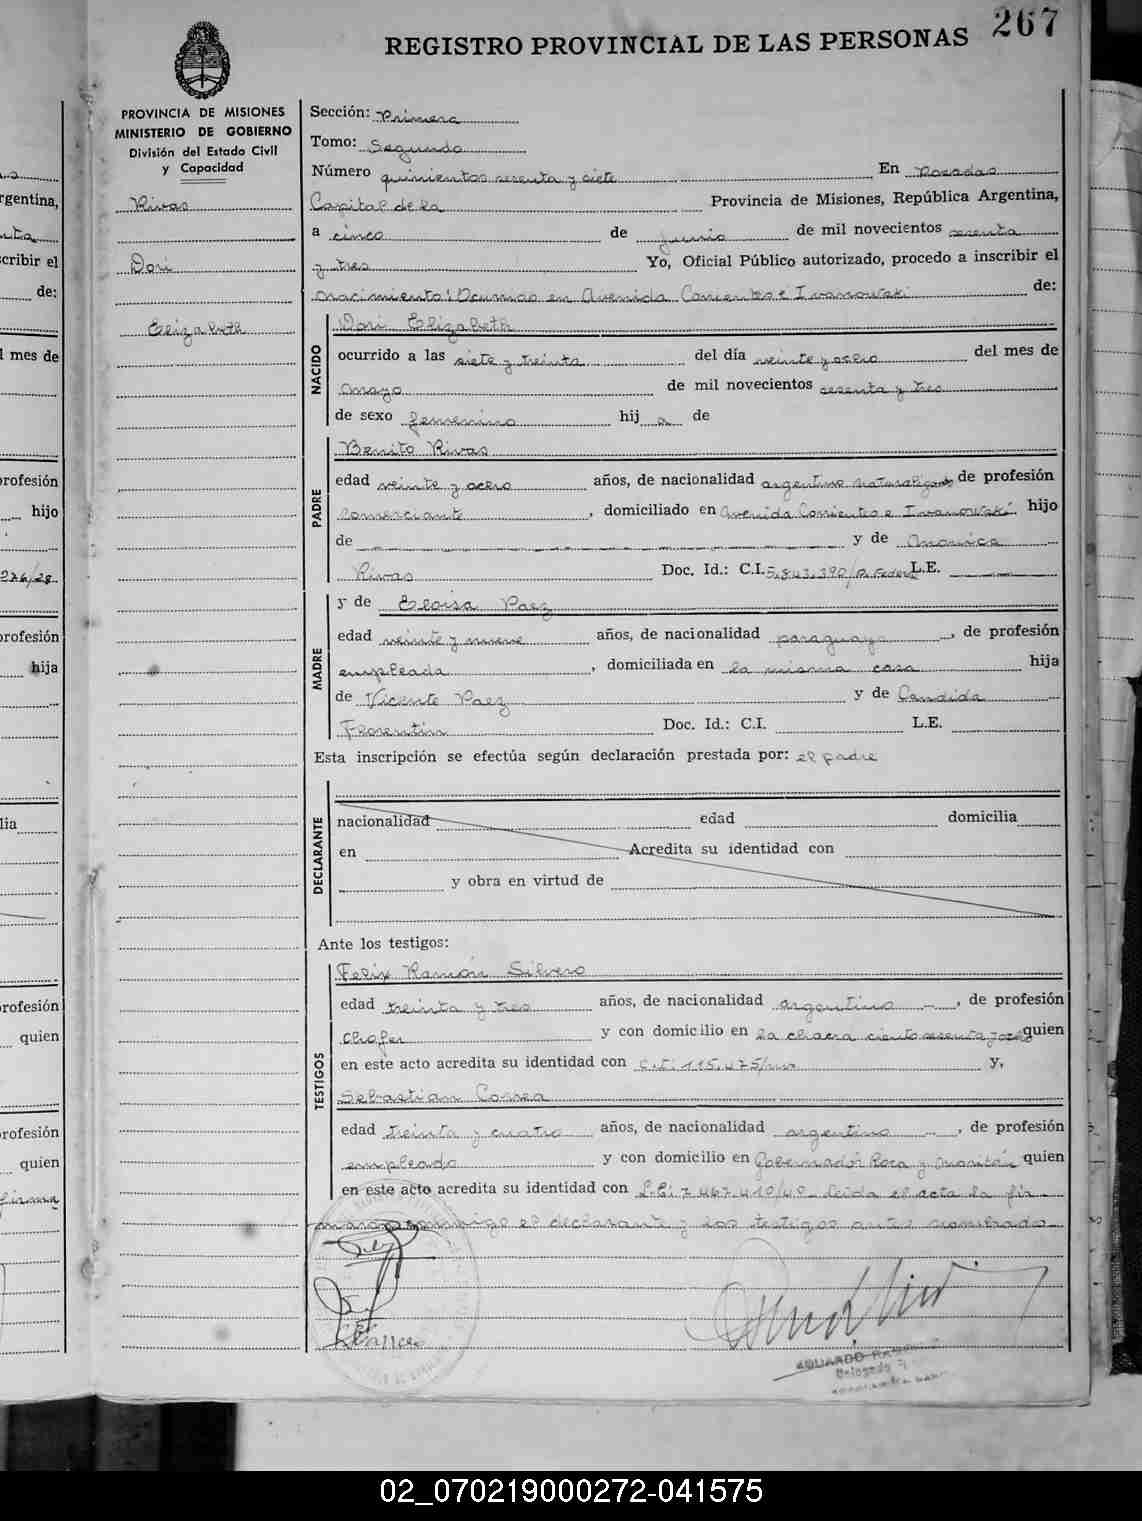 267
REGISTRO PROVINCIAL DE LAS PERSONAS
PROVINCIA DE MISIONES
MINISTERIO DE GOBIERNO
División del Estado Civil
y Capacidad
Rivas
Dori
Elizabeth
Sección: Primera
Tomo: Segundo
Número quinientos sesenta y siete En Posadas
Capital de la Provincia de Misiones, República Argentina,
a cinco de junio de mil novecientos sesenta
y tres Yo, Oficial Público autorizado, procedo a inscribir el
nacimiento: Ocurrido en Avenida Corrientes e Ivanowski de:
NACIDO
Dori Elizabeth
ocurrido a las siete y treinta del día veinte y ocho del mes de
mayo de mil novecientos sesenta y tres
de sexo femenino hij a de
PADRE
Benito Rivas
edad veinte y ocho años, de nacionalidad argentino naturalizado de profesión
comerciante, domiciliado en Avenida Corrientes e Ivanowski hijo
de y de
Rivas Doc. Id.: C.I. 5.843.390/P. Federal L.E.
MADRE
y de Eloisa Paez
edad veinte y nueve años, de nacionalidad paraguaya, de profesión
empleada, domiciliada en la misma casa hija
de Vicente Paez y de Candida
Florentin Doc. Id.: C.I. L.E.
Esta inscripción se efectúa según declaración prestada por: el padre
DECLARANTE
nacionalidad edad domicilia
en Acredita su identidad con
y obra en virtud de
Ante los testigos:
TESTIGOS
Felix Ramón Silvero
edad treinta y tres años, de nacionalidad argentino, de profesión
chofer y con domicilio en la chacra ciento sesenta y quien
en este acto acredita su identidad con C.I: 115.475/ y,
Sebastian Correa
edad treinta y cuatro años, de nacionalidad argentino, de profesión
empleado y con domicilio en Gobernador Roca y quien
en este acto acredita su identidad con Leida el acta la fir-
maron conmigo el declarante y los testigos antes nombrado
02_070219000272-041575